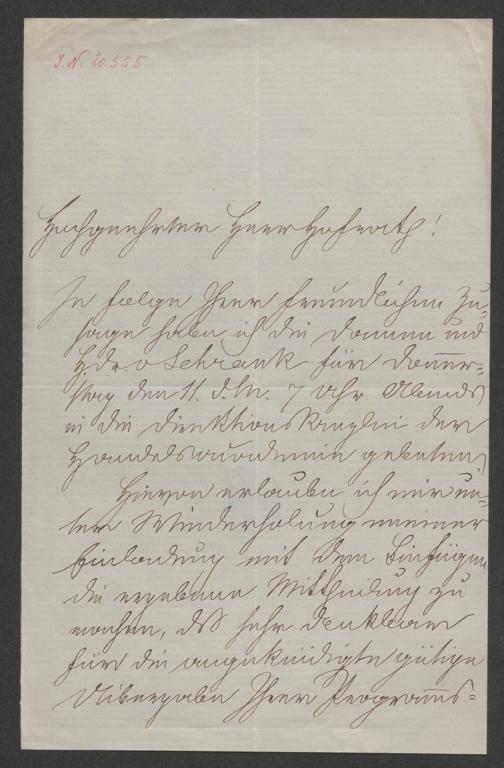 J. N. 20.555
Hochgeehrter Herr Hofrath!
In folge Ihrer freundlichen Zu-
sage habe ich die Damen und
H. Dr. v Schrank für Donner-
stag den 11. d. M. 7 Uhr Abends
in die Direktionskanzlei der
Handelsacademie gebeten,
Hievon erlaube ich mir un-
ter Wiederholung meiner
Einladung mit dem Beifügen
die ergebene Mittheilung zu
machen, daß sehr dankbar
für die angekündigte gütige
Übergabe Ihrer Programms-